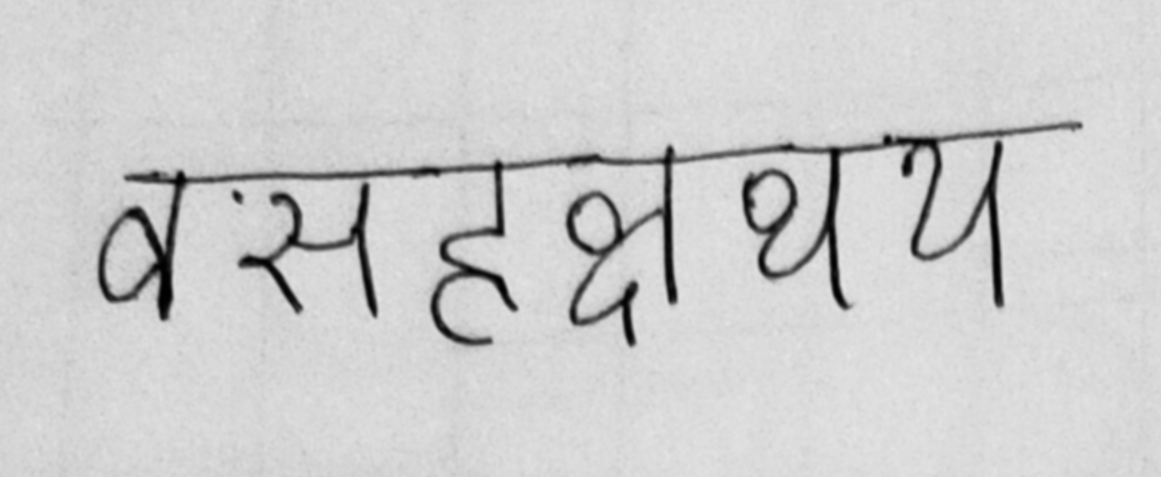 वसहक्षथय